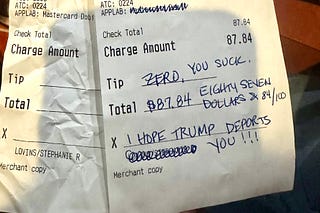 ATC: 0224
APPLAB: Mastercard
Check Total
Charge Amount
Tip
Total
X
LOVINS/STEPHANIE R
Merchant copy
ATC: 0224
APPLAB:
Check Total 87.84
87.84
Charge Amount 87.84
Tip ZERO, YOU SUCK.
Total $87.84 EIGHTY SEVEN
DOLLARS 84/100
X I HOPE TRUMP DEPORTS
YOU!!!
Merchant copy